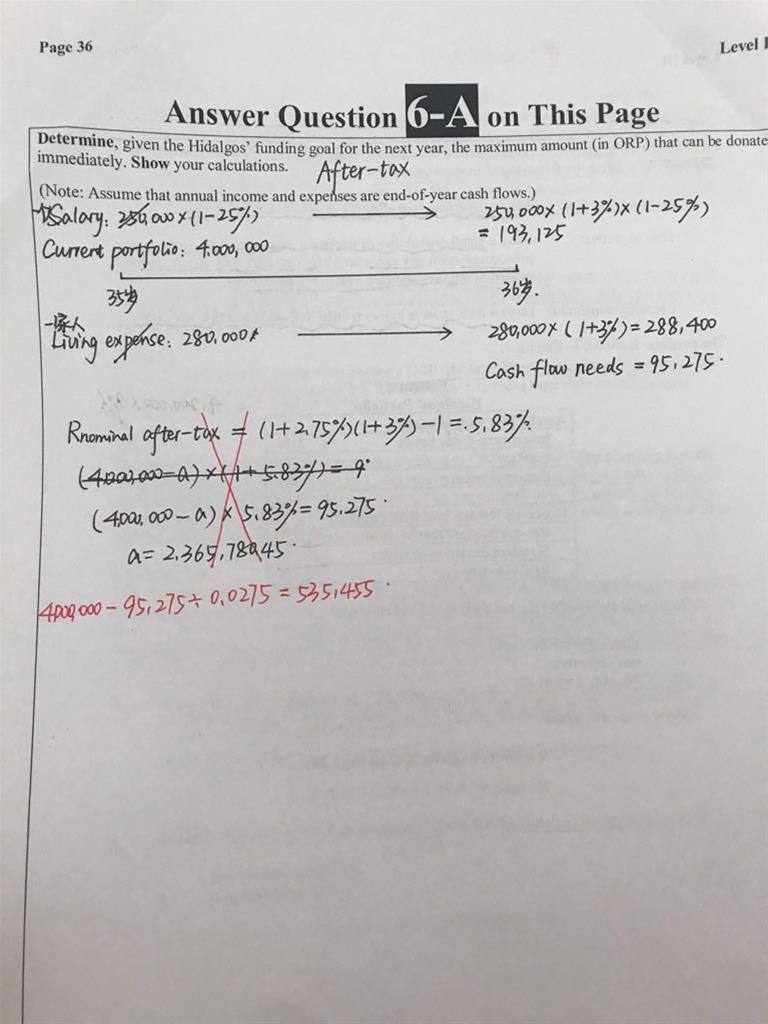 Page 36
Level I
Answer Question 6-A on This Page
Determine, given the Hidalgos' funding goal for the next year, the maximum amount (in ORP) that can be donate
immediately. Show your calculations.
After-tax
(Note: Assume that annual income and expenses are end-of-year cash flows.)
Salary: 250,000×(1-25%)
250,000×(1+3%)×(1-25%)
= 193,125
Current portfolio: 4,000,000
35岁
36岁.
一家人
Living expense: 280,000
280,000×(1+3%)=288,400
Cash flow needs = 95,275.
Rnominal after-tax = (1+2.75%)(1+3%)-1=5.83%.
(4,000,000-a)×(1+5.83%)=
(4,000,000-a)×5.83%=95,275.
a=2,365,780.45.
4,000,000-95,275÷0.0275=535,455.